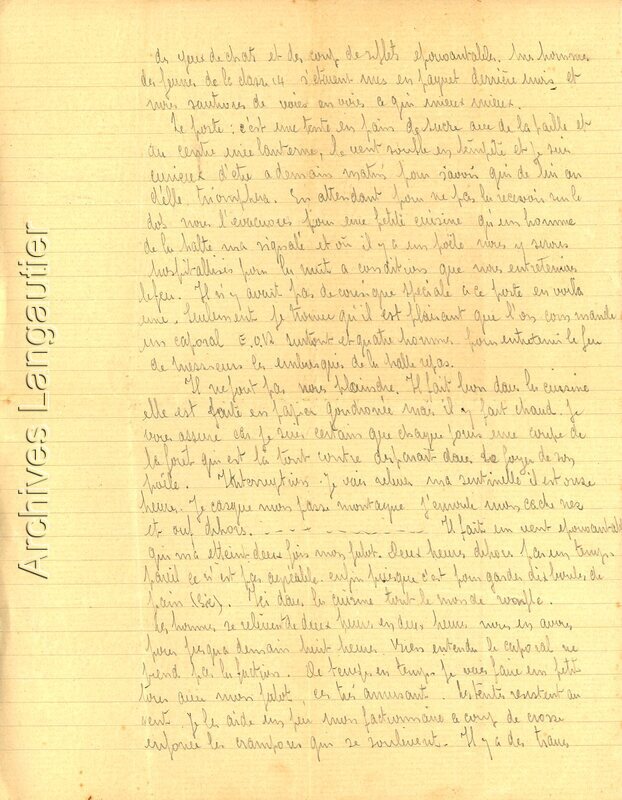 des yeux de chats et des coup de sifflets epouvantables. Mes hommes
des jeunes de la classe 14 s'etaient mis en paquet derrière mois et
nous sautions de voies en voies a qui mieux mieux.
Le poste : c'est une tente en pain de sucre avec de la paille et
au centre une lanterne, le vent souffle en tempête et je suis
curieux d'etre a demain matin pour savoir qui de l'un ou
d'elle triomphera. En attendant pour ne pas la recevoir sur le
dos nous l'evacuons pour une petite cuisine qu'un homme
de la halte ma signalé et où il y a un poêle nous y serons
hospitalisés pour la nuit a condition que nous entretenions
le feu. Il n'y avait pas de consigne speciale a ce poste en voila
une. Seulement je trouve qu'il est plaisant que l'on commande
un caporal E.O.R surtout et quatre hommes pour entretenir le feu
de messieurs les embusqués de la halte repas.
Il ne faut pas nous plaindre. Il fait bon dans la cuisine
elle est faite en papier goudronné mais il y fait chaud. Je
vous assure car je suis certain que chaque jours une coupe de
la foret qui est là tout contre disparait dans le foyer de son
poêle. Interruption. Je vais relever ma sentinelle il est onze
heures. Je casque mon passe montagne j'enroule mon cache nez
et ouf dehors. - - - - - - - - Il fait un vent epouvantable
qui m'a eteint deux fois mon falot. Deux heures dehors par un temps
pareil ce n'est pas agréable enfin puisque c'est pour garder dix boules de
pain (sic). Ici dans la cuisine tout le monde ronfle.
Les hommes se relèvent de deux heures en deux heures nous en avons
pour jusqu'a demain huit heures. Bien entendu le caporal ne
prend pas la faction. De temps en temps je vais faire un petit
tour avec mon falot, ces très amusant. Les tentes resistent au
vent. Je les aide un peu mon factionnaire a coup de crosse
enfonce les crampons qui se soulevent. Il y a des trains
Archives Langautier